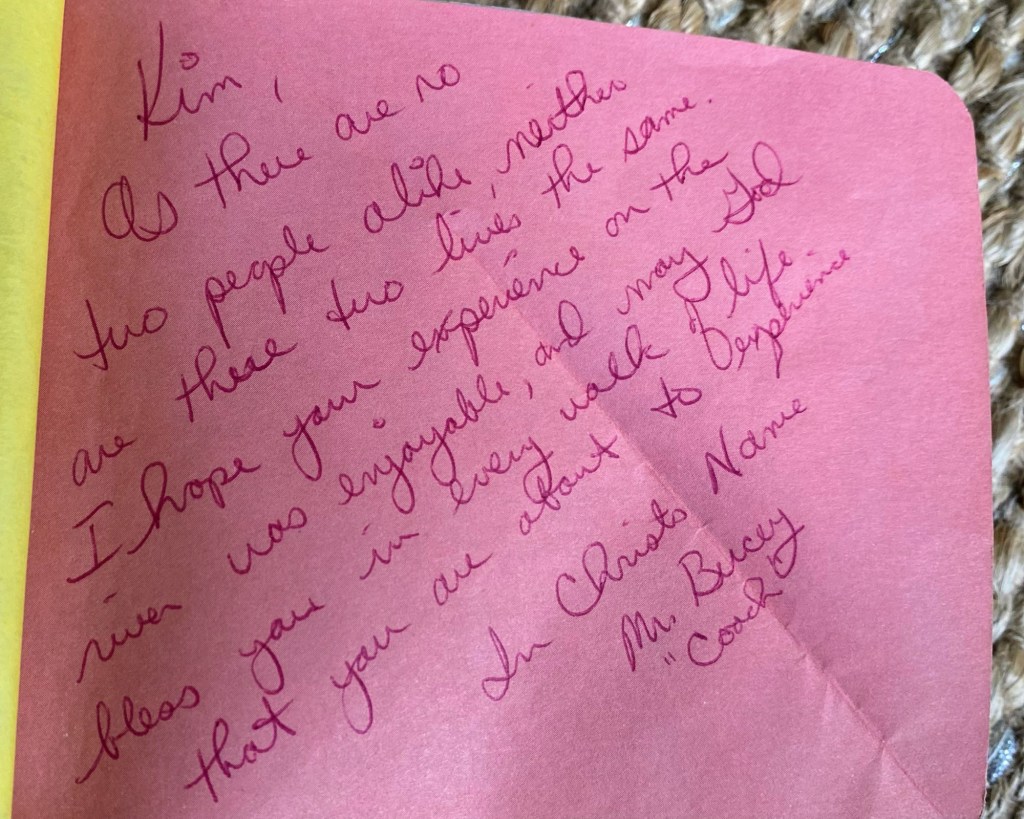 Kim,
As there are no
two people alike, neither
are there two lives the same.
I hope your experience on the
river was enjoyable, and may God
bless you in every walk of life
that you are about to experience.
In Christs Name
Mr. Bucey
"Coach"